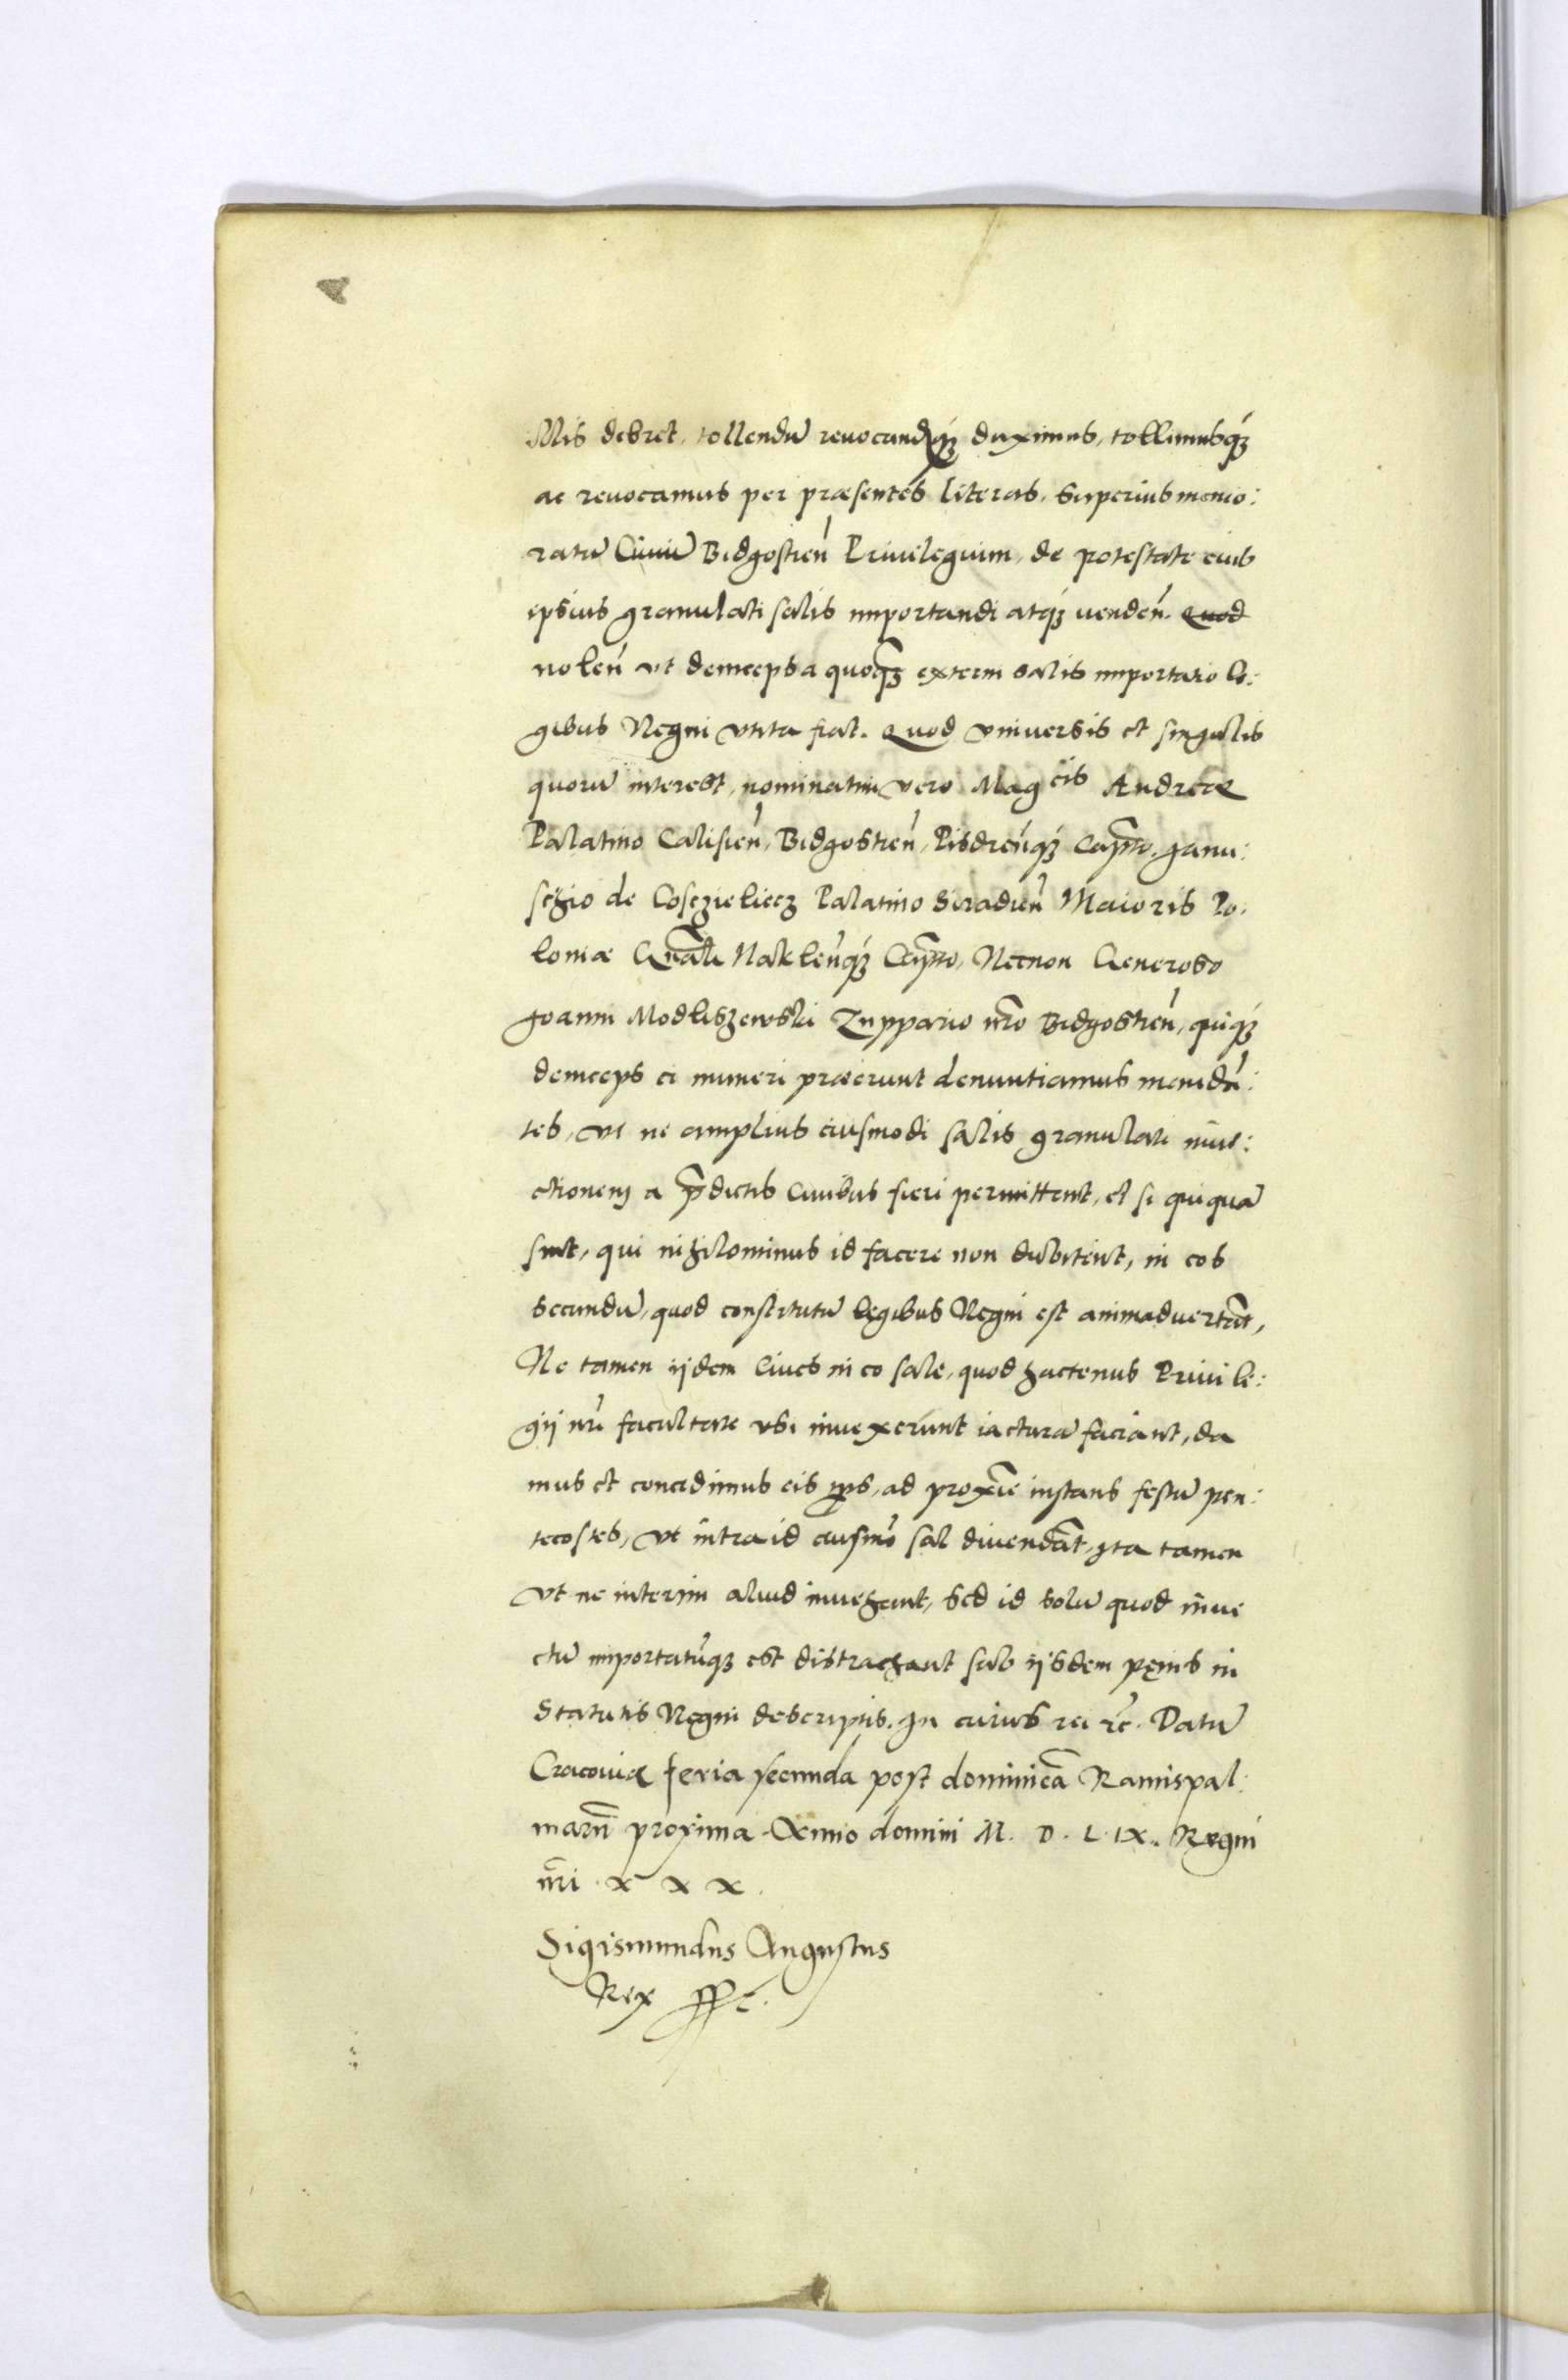 illis debret, tollendū reuocandūq duximus, tollimusq
ac reuocamus per præsentes literas, Superius memo:
ratū Ciuiū Bidgostien̄ Priuilegium, de potestate eius
ipsius granulati salis importandi atq uenden̄. Quod
nolen̄ vt deinceps a quoq externi salis importatio le:
gibus Regni vetita fiat. Quod vniuersis et singulis
quorū interest, nominatim vero Mag cis Andreæ
Palatino Calisien̄, Bidgostien̄, Pisdren̄q Capn̄o, Janu:
schio de Cosczieliecz Palatino Siradien̄ Maioris Po:
loniæ Gn̄ali Naklen̄q Capn̄o, Necnon Generoso
Joanni Modliszewski Zuppario nr̄o Bidgostien̄, quiq
deinceps ei muneri præerunt denuntiamus mandā:
tes, vt ne amplius eiusmodi salis granulati inue:
ctionem a p̄dictis Ciuibus fieri permittent, et si quiquā
sint, qui nihilominus id facere non dubitent, in eos
secundū, quod constitutū legibus Regni est animaduertāt,
Ne tamen ijdem Ciues in eo sale, quod hactenus Priuile:
gij nr̄i facultate vsi inuexerunt iacturā faciant, da
mus et concedimus eis tp̄s, ad proxīe instans festū pen:
tecostes, vt intra id eiusmo̅ sal diuendāt, ita tamen
vt ne interim aliud inuehant, sed id solū quod inue
ctū importatūq est distrahant sub ijsdem pęnis in
Statutis Regni descriptis. In cuius rei rc̄. Datū
Cracouiæ feria secunda post dominicā Ramispal:
marū proxima Anno domini M. D. L. IX. Regni
nr̄i X X X.
Sigismundus Augustus
Rex